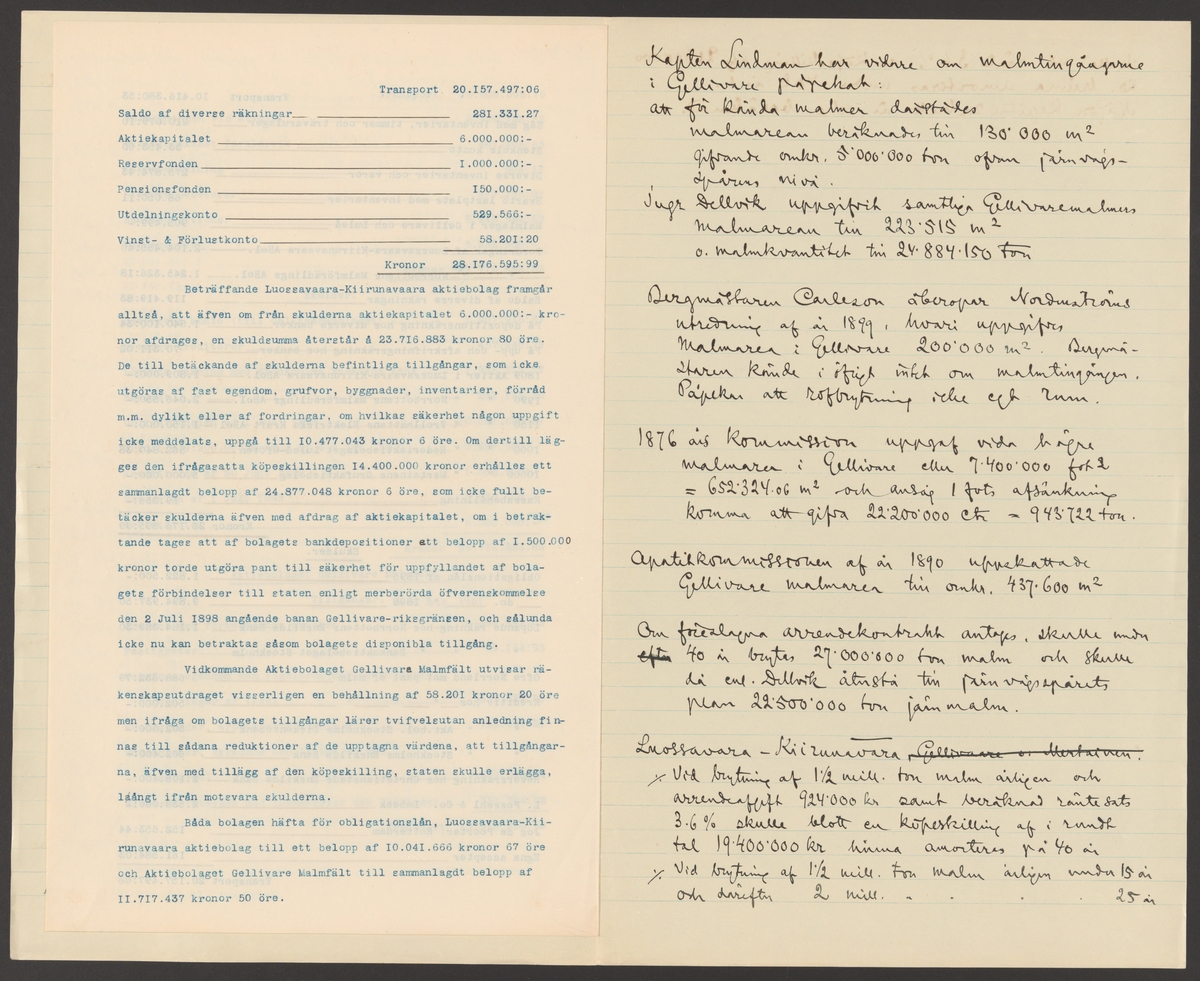 Transport 20.157.497:06
Saldo af diverse räkningar 281.331.27
Aktiekapitalet 6.000.000:-
Reservfonden 1.000.000:-
Pensionsfonden 150.000:-
Utdelningskonto 529.566:-
Vinst- & Förlustkonto 58.201:20
Kronor 28.176.595:99
Beträffande Luossavaara-Kiirunavaara aktiebolag framgår
alltså, att äfven om från skulderna aktiekapitalet 6.000.000:- kro-
nor afdrages, en skuldsumma återstår å 23.716.883 kronor 80 öre.
De till betäckande af skulderna befintliga tillgångar, som icke
utgöras af fast egendom, grufvor, byggnader, inventarier, förråd
m.m. dylikt eller af fordringar, om hvilkas säkerhet någon uppgift
icke meddelats, uppgå till 10.477.043 kronor 6 öre. Om dertill läg-
ges den ifrågasatta köpeskillingen 14.400.000 kronor erhålles ett
sammanlagdt belopp af 24.877.048 kronor 6 öre, som icke fullt be-
täcker skulderna äfven med afdrag af aktiekapitalet, om i betrak-
tande tages att af bolagets bankdepositioner ett belopp af 1.500.000
kronor torde utgöra pant till säkerhet för uppfyllandet af bola-
gets förbindelser till staten enligt merberörda öfverenskommelse
den 2 Juli 1898 angående banan Gellivare-riksgränsen, och sålunda
icke nu kan betraktas såsom bolagets disponibla tillgång.
Vidkommande Aktiebolaget Gellivare Malmfält utvisar rä-
kenskapsutdraget visserligen en behållning af 58.201 kronor 20 öre
men ifråga om bolagets tillgångar lärer tvifvelsutan anledning fin-
nas till sådana reduktioner af de upptagna värdena, att tillgångar-
na, äfven med tillägg af den köpeskilling, staten skulle erlägga,
låångt ifrån motsvara skulderna.
Båda bolagen häfta för obligationslån, Luossavaara-Kii-
runavaara aktiebolag till ett belopp af 10.041.666 kronor 67 öre
och Aktiebolaget Gellivare Malmfält till sammanlagdt belopp af
11.717.437 kronor 50 öre.
Kapten Lindman har vidare om malmtillgångarne
i Gellivare påpekat:
att för kända malmer därstädes
malmarean beräknades till 130'000 m²
gifvande omkr. 5'000'000 ton ofvan järnvägs-
spårens nivå.
Ingr Dellvik uppgifvit samtliga Gellivaremalmers
malmarean till 223'515 m²
o. malmkvantitet till 24.884.150 ton
Bergmästaren Carlsson åberopar Nordenströms
utredning af år 1899, hvari uppgifves
Malmarea i Gellivare 200'000 m². Bergmä-
staren kände i öfrigt intet om malmtillgången.
Påpekas att rofbrytning icke egt rum.
1876 års Kommission uppgaf vida högre
malmarea i Gellivare eller 7.400'000 fot2
= 652.324.06 m² och ansåg 1 fots afsänkning
komma att gifva 22'200'000 ctr = 943'722 ton.
Apatitkommissionen af år 1890 uppskattade
Gellivare malmarea till omkr. 437.600 m²
Om föreslagna arrendekontrakt antages, skulle under
efter 40 år brytas 27'000'000 ton malm och skulle
då enl. Dellvik återstå till järnvägsspårets
plan 22'500'000 ton järnmalm.
Luossavara - Kiirunavara, Gellivaare o. Mertainen.
·/. Vid brytning af 1½ mill. ton malm årligen och
arrendeafgift 924'000 kr samt beräknad räntesats
3.6% skulle blott en köpeskilling af i rundt
tal 19'400'000 kr hinna amorteras på 40 år
·/. Vid brytning af 1½ mill. ton malm årligen under 15 år
och därefter 2 mill. " . . . 25 år